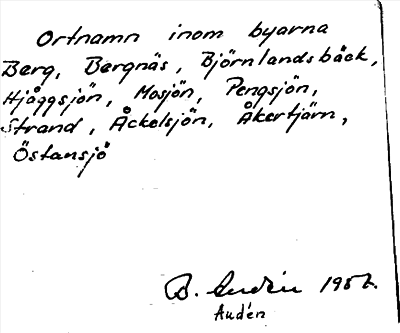 Ortnamn inom byarna
Berg, Bergnäs, Björnlandsbäck,
Hjåggsjön, Mosjön, Pengsjön,
Strand, Åckelsjön, Åkertjärn,
Östansjö
B. Audén 1957.
Audén